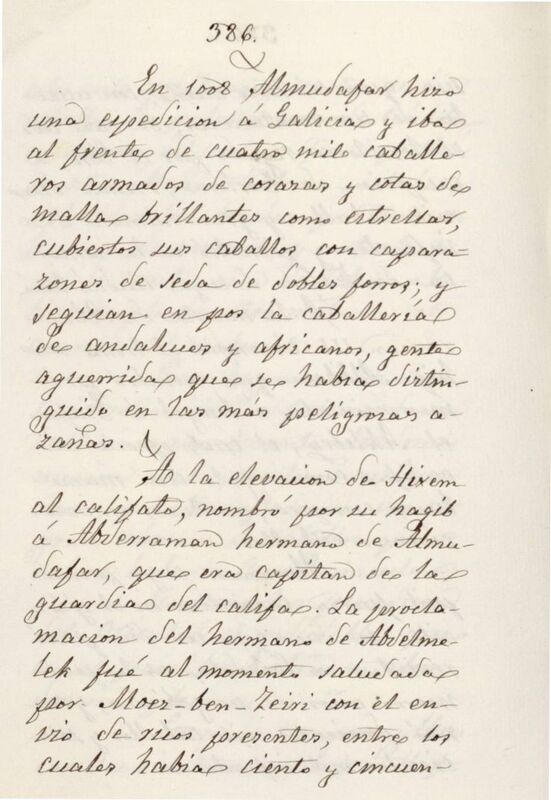 386.
En 1008 Almudafar hizo
una espedicion á Galicia y iba
al frente de cuatro mil caballe-
ros armados de corazas y cotas de
malla brillantes como estrellas,
cubiertos sus caballos con capara-
zones de seda de dobles forros; y
seguian en pos la caballería
de andaluces y africanos, gente
aguerrida que se habia distin-
guido en las más peligrosas a-
zañas.
A la elevacion de Hixem
al califato, nombró por su hagib
á Abderraman hermano de Almu-
dafar, que era capitan de la
guardia del califa. La procla-
macion del hermano de Abdelme-
lek fué al momento saludada
por Moez-ben-Zeiri con el en-
vio de ricos presentes, entre los
cuales habia ciento y cincuen-